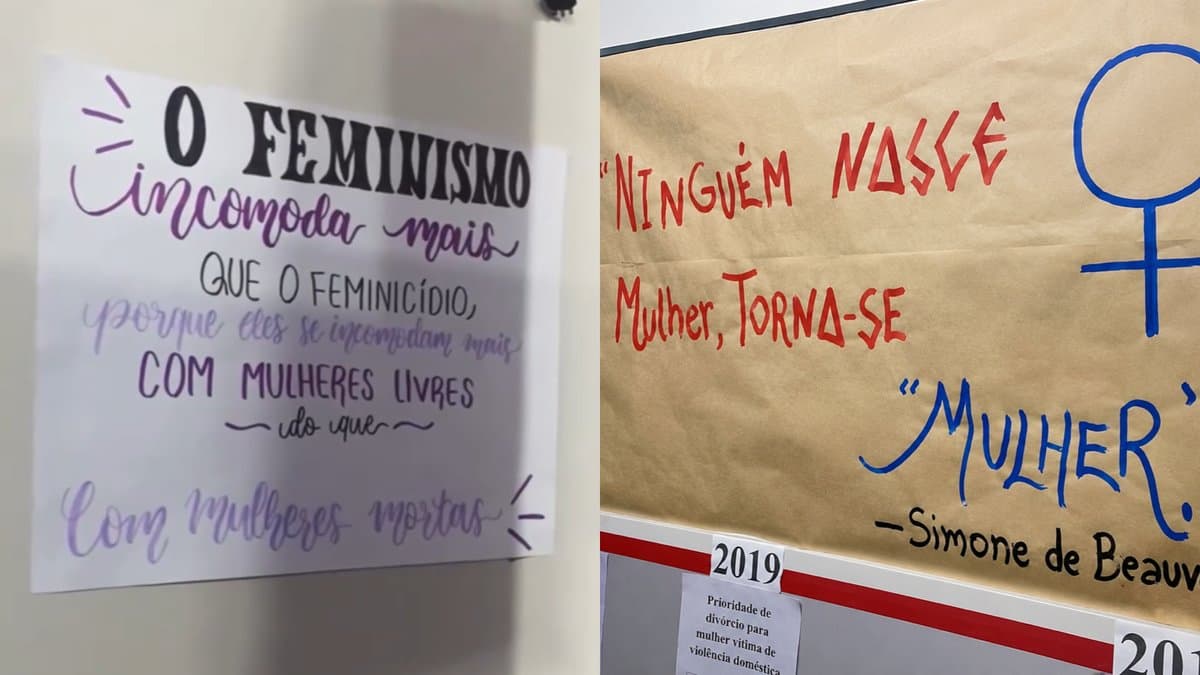 O FEMINISMO
incomoda mais
QUE O FEMINICÍDIO,
porque eles se incomodam mais
COM MULHERES LIVRES
do que
Com mulheres mortas
"NINGUÉM NASCE
Mulher, TORNA-SE
"MULHER."
-Simone de Beauv
2019
Prioridade de
divórcio para
mulher vítima de
violência doméstica
201